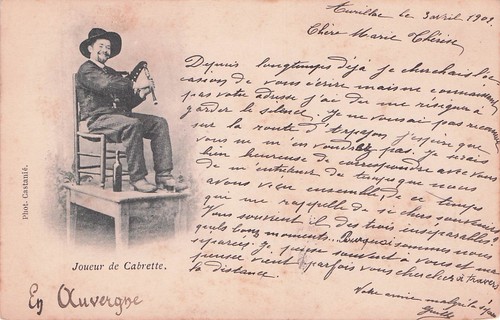 Aurillac le 3 avril 1901
Chère Marie Thérèse
Depuis longtemps déjà je cherchais l'oc-
casion de vous écrire mais ne connaissant
pas votre adresse j'ai du me résigner à
garder le silence. Je ne vous ai pas
sur la route d'Arpajon j'espère que
vous ne m'en voudrez pas. Je serais
bien heureuse de correspondre avec vous
de m'entretenir du temps que nous
avons vécu ensemble, de ce temps
qui me rappelle de si chers souvenirs
Vous souvient il des trois inséparables
quels bons moments... Pourquoi sommes nous
séparées. Je pense souvent à vous et ma
pensée vient parfois vous chercher à travers
la distance.
Votre amie malgré
Phot. Castanié.
Joueur de Cabrette.
En Auvergne